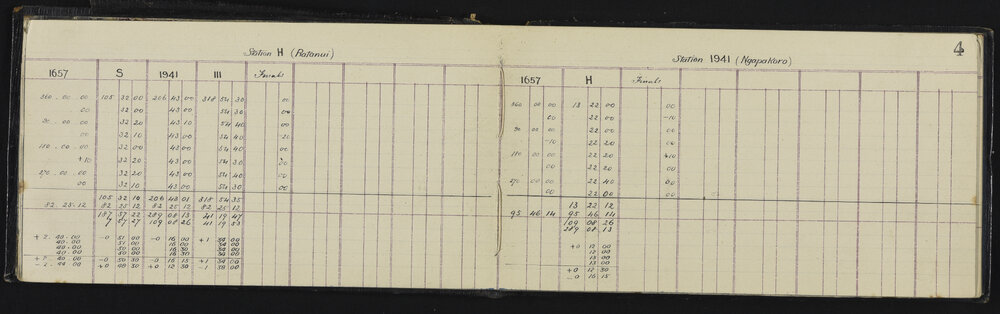 4
Station H (Ratanui)
1657 S 1941 III Finals
360.00.00 105 32 00 206 43 00 318 54 30 00
00 32 00 43 00 54 30 00
90.00.00 32 20 43 10 54 40 00
00 32 10 43 00 54 40
180.00.00 32 20 54 40 00
+10 32 20 43 00 54 30
270.00.00 32 20 43 00 54 40 00
00 32 10 43 00 54 30 00
105 32 16 206 43 01 318 54 35
82.25.12 82 25 12 82 25 12 82 25 12
187 57 22 289 08 13 41 19 47
7 57 27 109 08 26 41 19 53
+2.40.00 -0 51 00 -0 16 00 +1 34 00
40.00 51 00 16 00 34 00
40.00 50 00 16 30 34 00
40.00 50 00 16 30 34 00
+2.40.00 -0 50 30 -0 16 15 +1 34 00
+0 48 30 +0 12 30 -1 38 00
Station 1941 (Ngapakoro)
1657 H Finals
360 00 00 13 22 00 00
00 22 00 -10
90 00 00 22 00 00
-10 22 20 00
180 00 00 22 20
00 22 20 00
270 00 00 22 40 00
00 22 00
13 22 12
95 46 14 95 46 14
109 08 26
289 08 13
+0 12 00
12 00
13 00
13 00
+0 12 30
-0 16 15